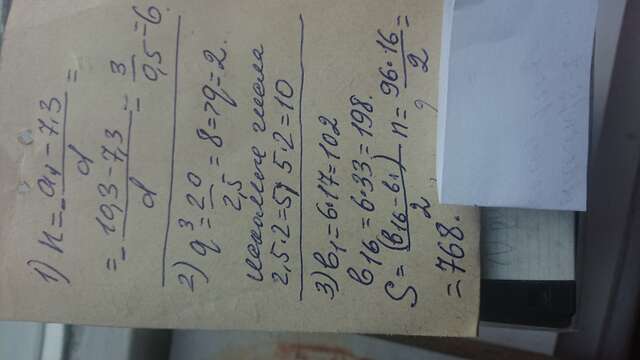 1) n = - a₁ - 7,3 / d =
= - 10,3 - 7,3 / d = 3 / 0,5 = 6
2) q³ = 20 / 2,5 = 8 => q = 2.
искомые числа
2,5·2=5; 5·2=10
3) b₁ = 6·17 = 102
b₁₆ = 6·33 = 198.
S = (b₁₆ - b₁) / 2 n = 96·16 / 2 =
= 768.